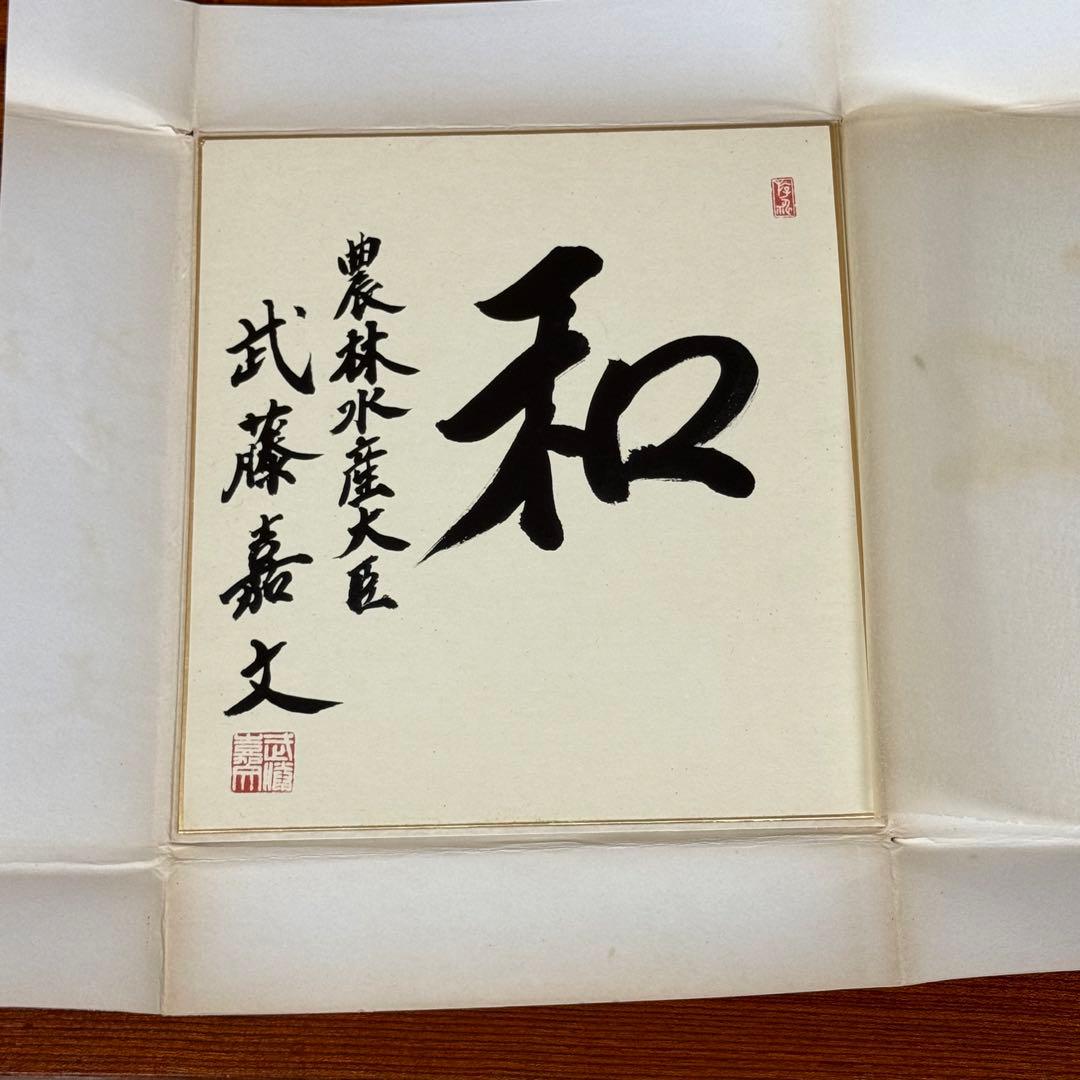 和
農林水産大臣
武藤嘉文
武藤嘉文